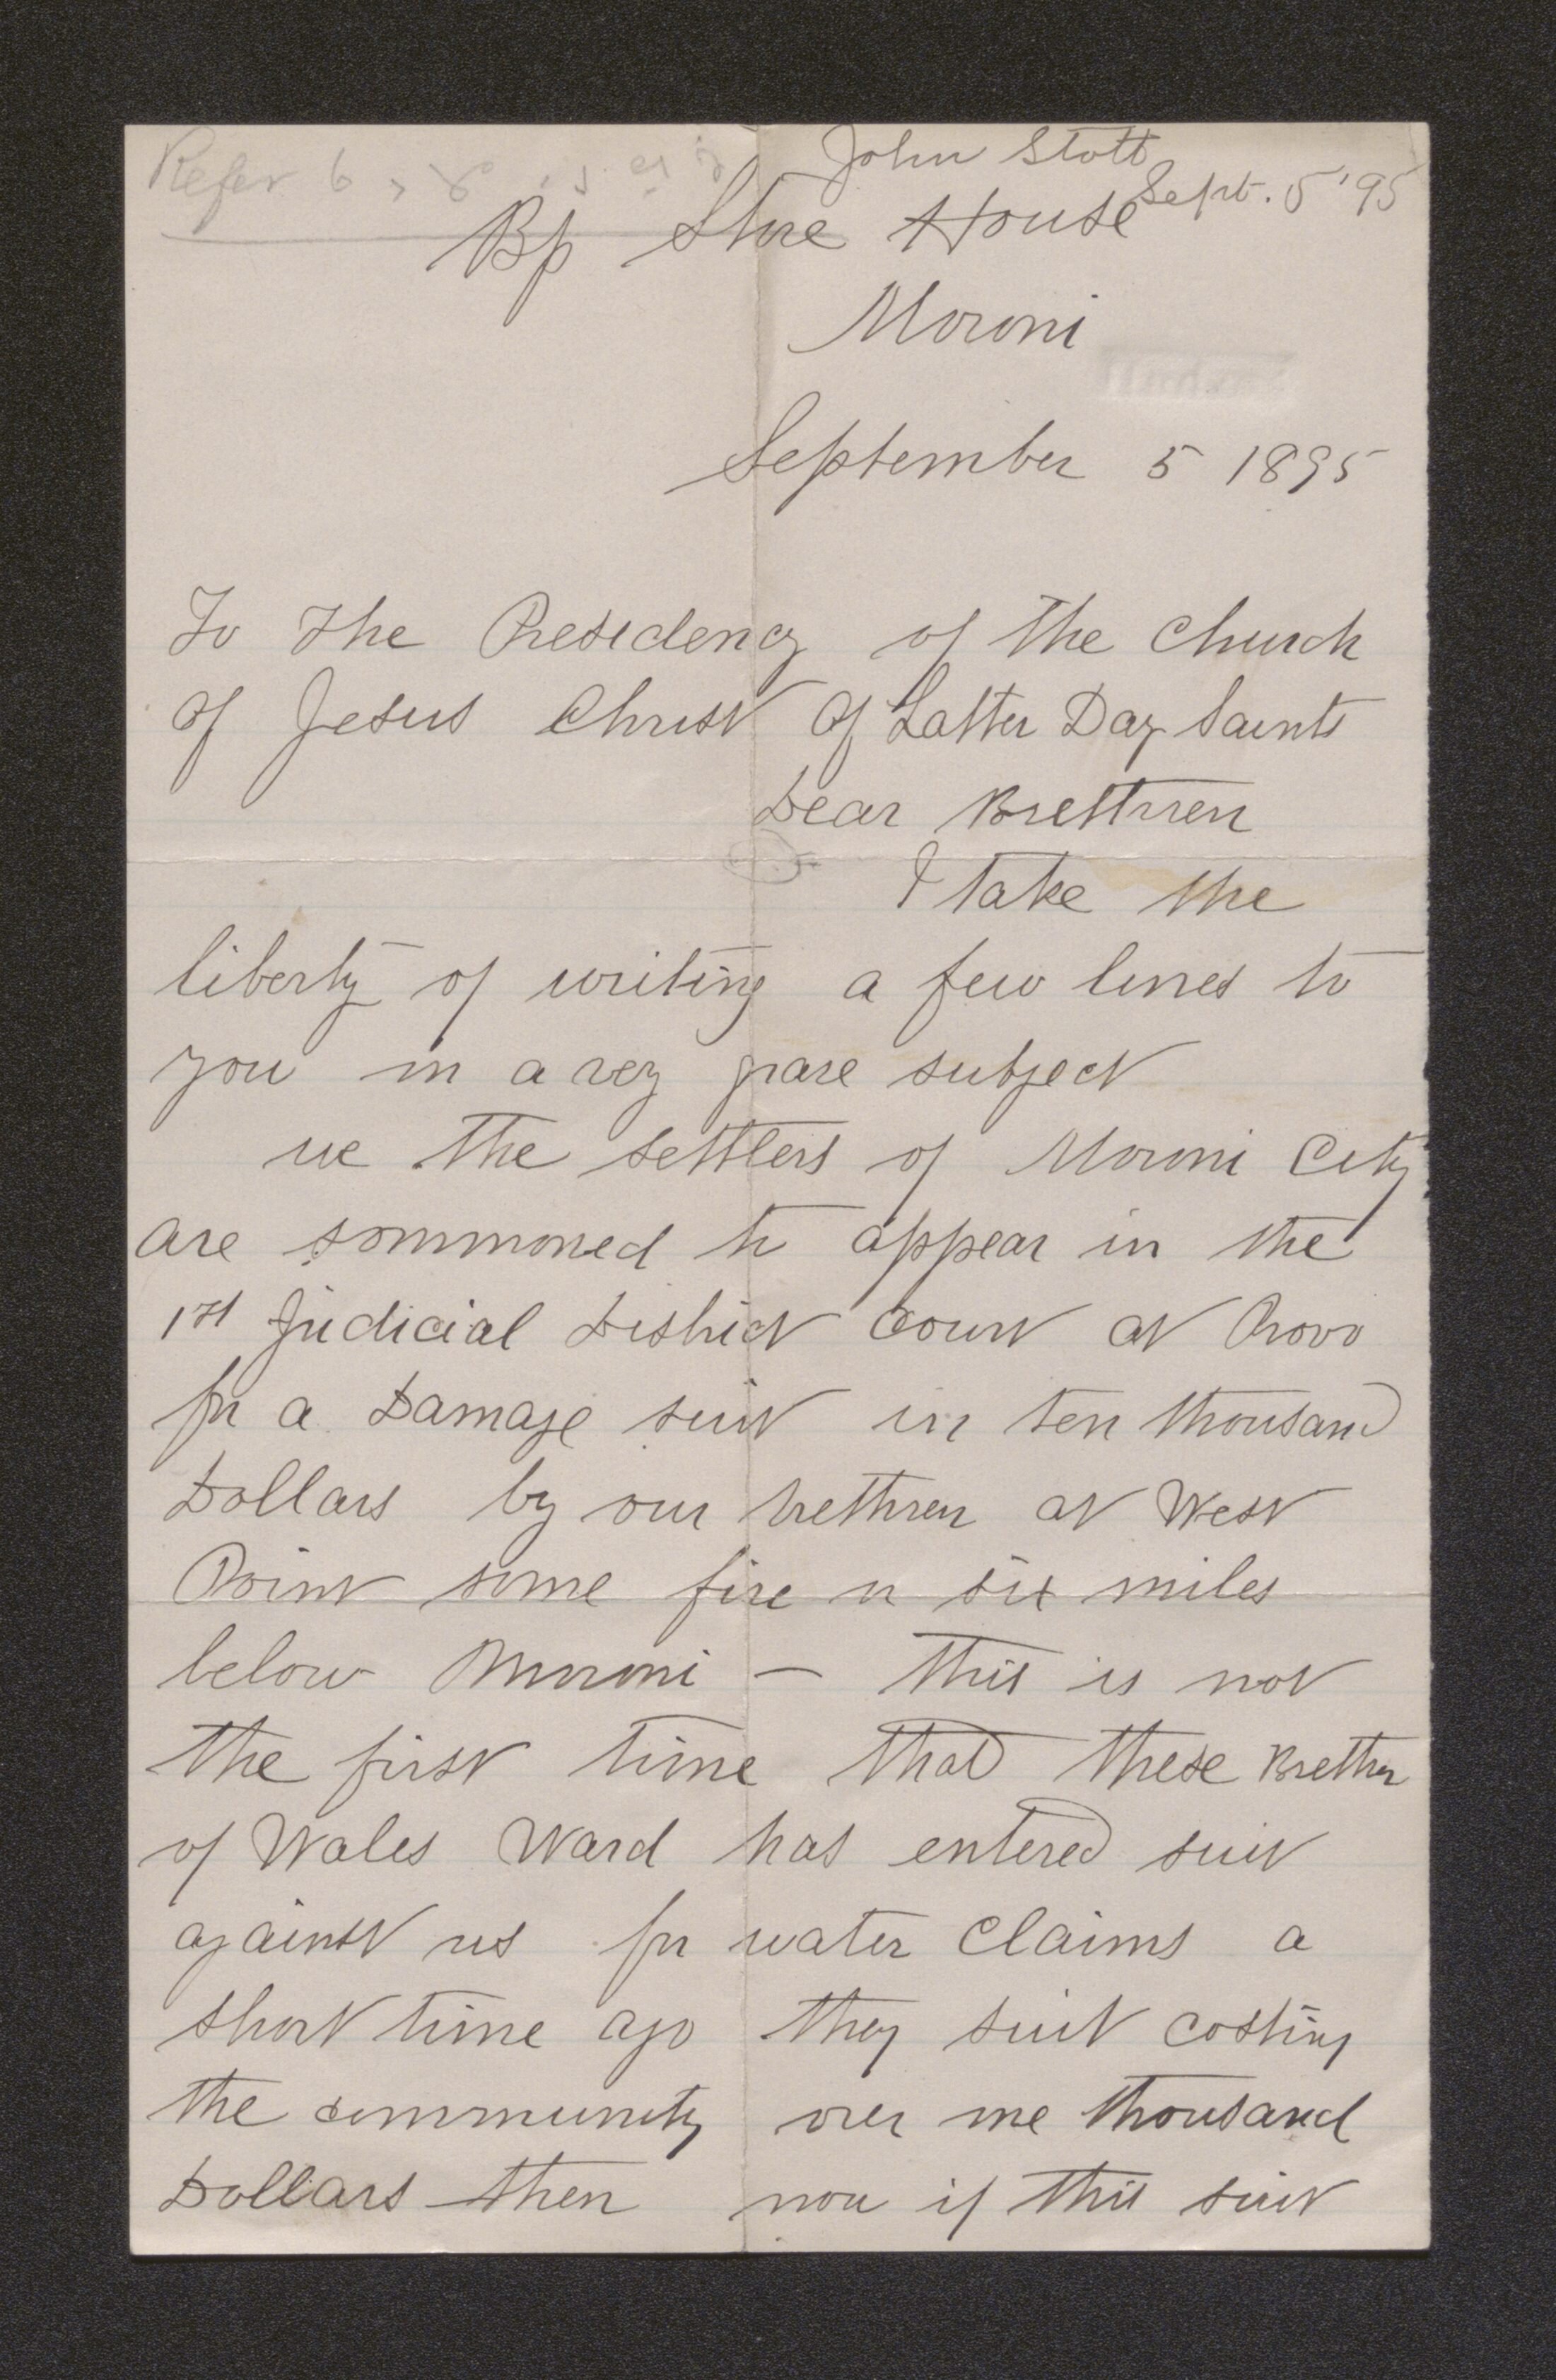 John Stott
Sept. 5 '95
Refer
Bp Store House
Moroni
September 5 1895
To The Presidency of the Church
of Jesus Christ of Latter Day Saints
Dear Brethren
I take the
liberty of writing a few lines to
you in a very grave subject
we the settlers of Moroni City
are sommoned to appear in the
1st Judicial District Court at Provo
for a Damage suit in ten thousand
Dollars by our brethren at West
Point some five or six miles
below Moroni – this is not
the first time that these Brethren
of Wales Ward has entered suit
against us for water claims a
short time ago they suit costing
the community over one thousand
Dollars then now if this suit